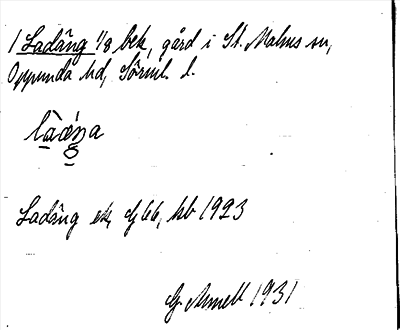 1 Ladäng 1/8 bek, gård i St. Malms sn,
Oppunda hd, Sörml. l.
Ladäng ek, Gj 66, kb 1923
G. Armell 1931